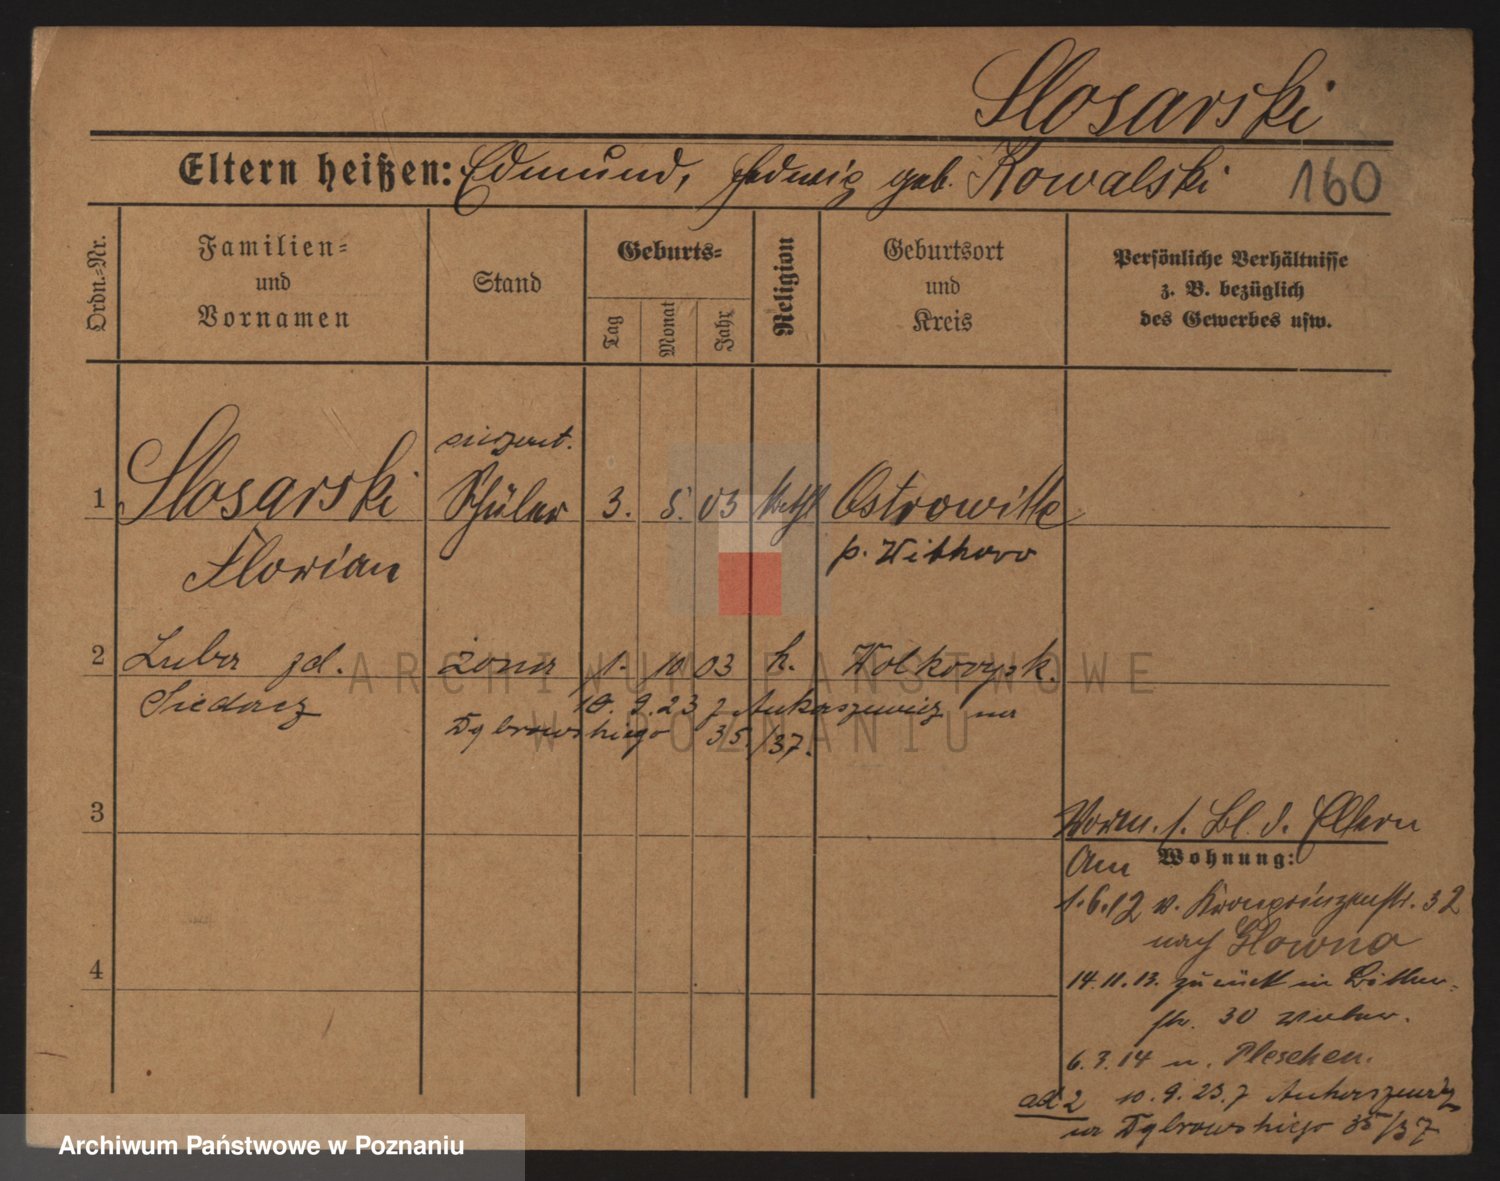 Slosarski
Eltern heißen: Edmund, Hedwig geb. Kowalski 160
Ordn.-Nr.
Familien-
und
Vornamen
Stand
Geburts-
Tag
Monat
Jahr
Religion
Geburtsort
und
Kreis
Persönliche Verhältnisse
z. B. bezüglich
des Gewerbes usw.
1 Slosarski Schüler 3. 5. 03 kath Ostrowitte
Florian p. Witkowo
2 Luba zd. żona 1. 10 03 k. Wolkowysk.
Siedacz 10. 9. 23 z na
Dąbrowskiego 35/37.
3
Vorm. s. Bl. d. Eltern
Wohnung:
Am
1.6.12 v. Kronprinzenstr. 32
nach Glowno
14.11.13. zurück in
str. 30
6.3.14 n. Pleschen.
4
ad 2 10. 9. 23. z
na Dąbrowskiego 35/37
ARCHIWUM PAŃSTWOWE
W POZNANIU
Archiwum Państwowe w Poznaniu